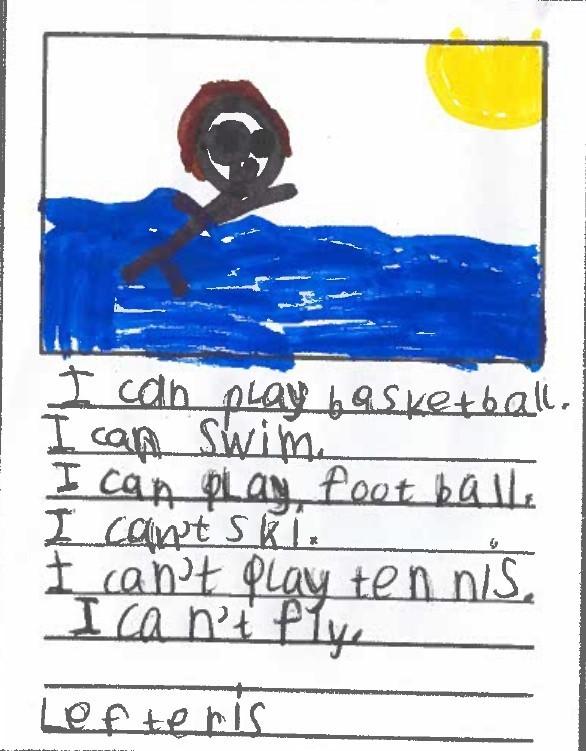 I can play basketball.
I can swim.
I can play football.
I can't ski.
I can't play tennis.
I can't fly.
Lefteris